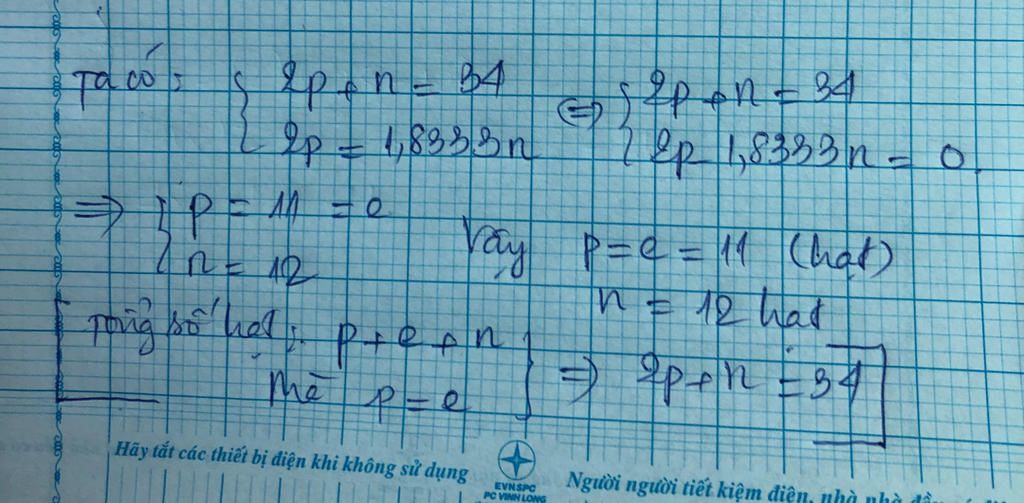 Ta có: { 2p + n = 34 ⇔ { 2p + n = 34
2p = 1,8333n 2p 1,8333n = 0.
⇒ { p = 11 = e
n = 12 Vậy p = e = 11 (hạt)
n = 12 hạt
[ Tổng số hạt: p + e + n } ⇒ 2p + n = 34 ]
Mà p = e
Hãy tắt các thiết bị điện khi không sử dụng
EVNSPC
PC VINH LONG
Người người tiết kiệm điện, nhà nhà